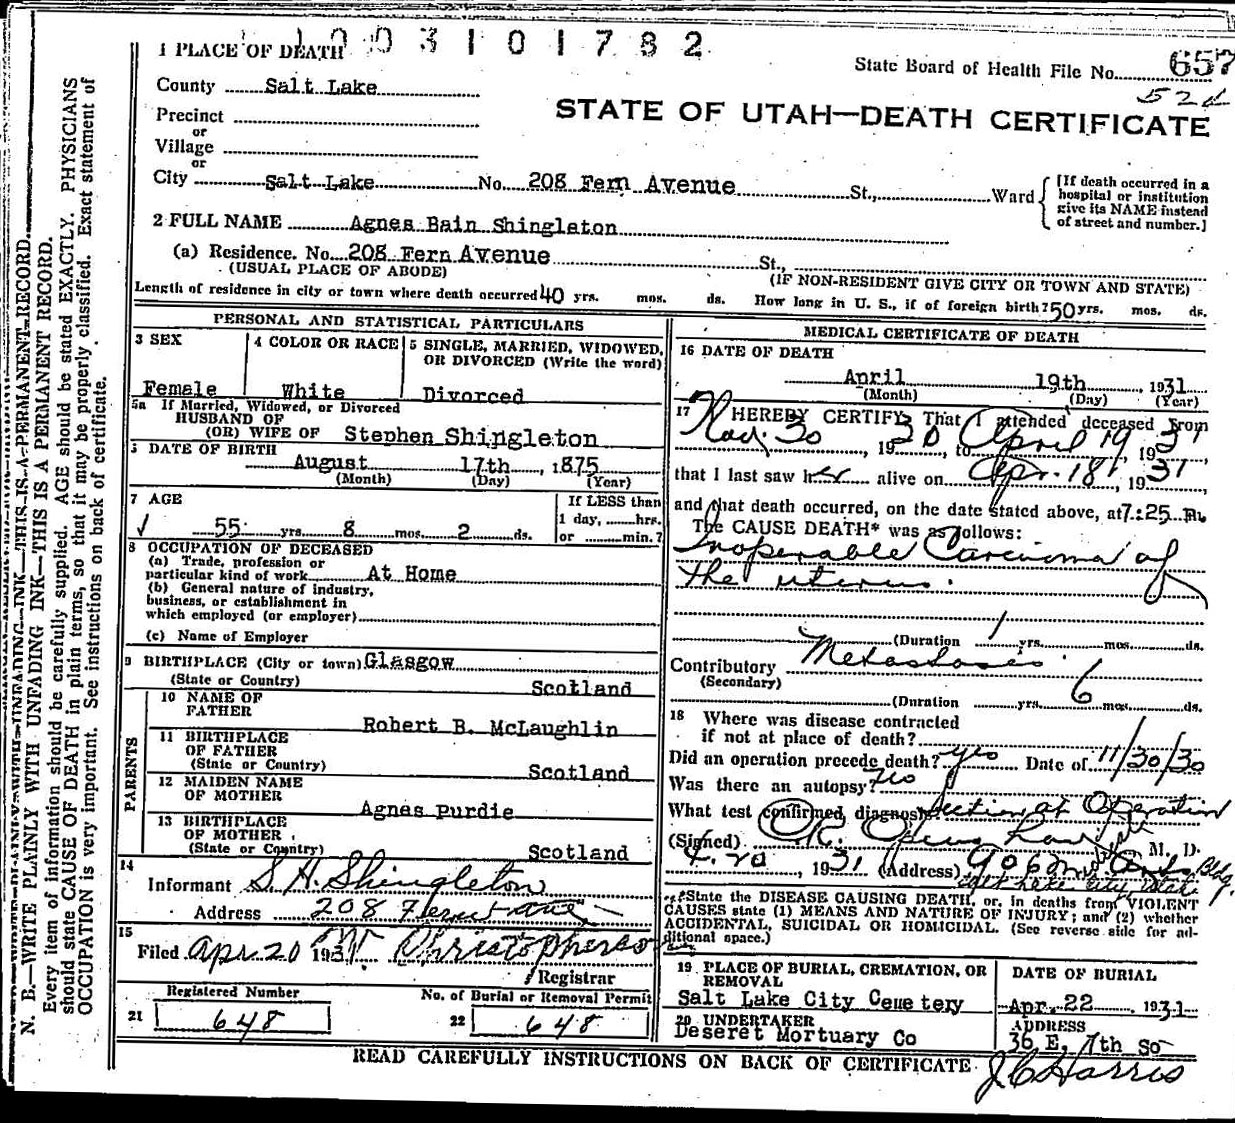 1003101782
1 PLACE OF DEATH
State Board of Health File No. 657
County Salt Lake
52d
STATE OF UTAH—DEATH CERTIFICATE
Precinct
or
Village
or
City Salt Lake No. 208 Fern Avenue St., Ward
[If death occurred in a
hospital or institution
give its NAME instead
of street and number.]
2 FULL NAME Agnes Bain Shingleton
(a) Residence. No. 208 Fern Avenue St.,
(USUAL PLACE OF ABODE) (IF NON-RESIDENT GIVE CITY OR TOWN AND STATE)
Length of residence in city or town where death occurred 40 yrs. mos. ds. How long in U. S., if of foreign birth? 50 yrs. mos. ds.
PERSONAL AND STATISTICAL PARTICULARS
3 SEX
Female
4 COLOR OR RACE
White
5 SINGLE, MARRIED, WIDOWED,
OR DIVORCED (Write the word)
Divorced
5a If Married, Widowed, or Divorced
HUSBAND OF
(OR) WIFE OF Stephen Shingleton
6 DATE OF BIRTH
August 17th, 1875
(Month) (Day) (Year)
7 AGE
55 yrs. 8 mos. 2 ds.
If LESS than
1 day, hrs.
or min.?
8 OCCUPATION OF DECEASED
(a) Trade, profession or
particular kind of work At Home
(b) General nature of industry,
business, or establishment in
which employed (or employer)
(c) Name of Employer
9 BIRTHPLACE (City or town) Glasgow
(State or Country) Scotland
PARENTS
10 NAME OF
FATHER Robert B. McLaughlin
11 BIRTHPLACE
OF FATHER
(State or Country) Scotland
12 MAIDEN NAME
OF MOTHER Agnes Purdie
13 BIRTHPLACE
OF MOTHER
(State or Country) Scotland
14
Informant S. H. Shingleton
Address 208 Fern Ave
15
Filed Apr 20 1931 Christopherson
Registrar
Registered Number
21 648
No. of Burial or Removal Permit
22 648
MEDICAL CERTIFICATE OF DEATH
16 DATE OF DEATH
April 19th, 1931
(Month) (Day) (Year)
17 I HEREBY CERTIFY, That I attended deceased from
Nov. 30, 1930, to April 19, 1931,
that I last saw her alive on Apr. 18, 1931,
and that death occurred, on the date stated above, at 7:25 m.
The CAUSE DEATH* was as follows:
Inoperable Carcinoma of
the uterus.
(Duration 1 yrs. mos. ds.
Contributory Metastasis.
(Secondary)
(Duration yrs. 6 mos. ds.
18 Where was disease contracted
if not at place of death?
Did an operation precede death? yes Date of 11/30/30
Was there an autopsy? no
What test confirmed diagnosis? Section at Operation
(Signed) M. D.
4-20, 1931 (Address) 906 Bldg.
Salt Lake City Utah
*State the DISEASE CAUSING DEATH, or, in deaths from VIOLENT
CAUSES state (1) MEANS AND NATURE OF INJURY; and (2) whether
ACCIDENTAL, SUICIDAL OR HOMICIDAL. (See reverse side for ad-
ditional space.)
19 PLACE OF BURIAL, CREMATION, OR
REMOVAL
Salt Lake City Cemetery
DATE OF BURIAL
Apr. 22, 1931
20 UNDERTAKER
Deseret Mortuary Co
ADDRESS
36 E. 7th So
READ CAREFULLY INSTRUCTIONS ON BACK OF CERTIFICATE
J C Harris
N. B.—WRITE PLAINLY WITH UNFADING INK—THIS IS A PERMANENT RECORD.
Every item of information should be carefully supplied. AGE should be stated EXACTLY. PHYSICIANS
should state CAUSE OF DEATH in plain terms, so that it may be properly classified. Exact statement of
OCCUPATION is very important. See instructions on back of certificate.